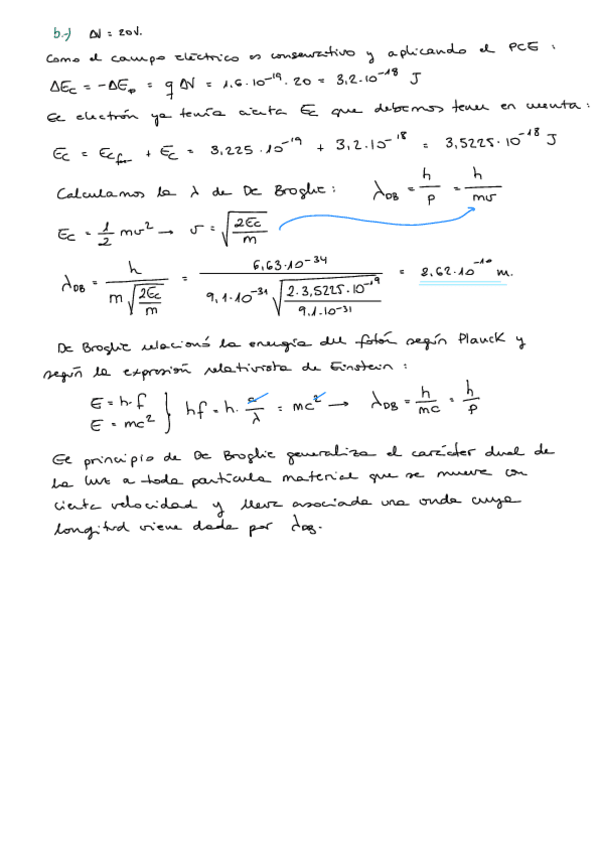 b.-) ΔV = 20V.
Como el campo eléctrico es conservativo y aplicando el PCE :
ΔEc = -ΔEp = q ΔV = 1.6·10⁻¹⁹ · 20 = 3,2·10⁻¹⁸ J
El electrón ya tenía cierta Ec que debemos tener en cuenta :
Ec = Ec + Ec = 3,225·10⁻¹⁹ + 3,2·10⁻¹⁸ = 3,5225·10⁻¹⁸ J
Calculamos la λ de De Broglie : λDB = h/p = h/mv
Ec = 1/2 mv² → v = √(2Ec/m)
λDB = h / (m √(2Ec/m)) = 6,63·10⁻³⁴ / (9,1·10⁻³¹ √(2·3,5225·10⁻¹⁹ / 9,1·10⁻³¹)) = 2,62·10⁻¹⁰ m.
De Broglie relacionó la energía del fotón según Planck y
según la expresión relativista de Einstein :
E = h·f
E = mc² } hf = h · c/λ = mc² → λDB = h/mc = h/p
El principio de De Broglie generaliza el carácter dual de
la luz a toda partícula material que se mueve con
cierta velocidad y lleva asociada una onda cuya
longitud viene dada por λDB.